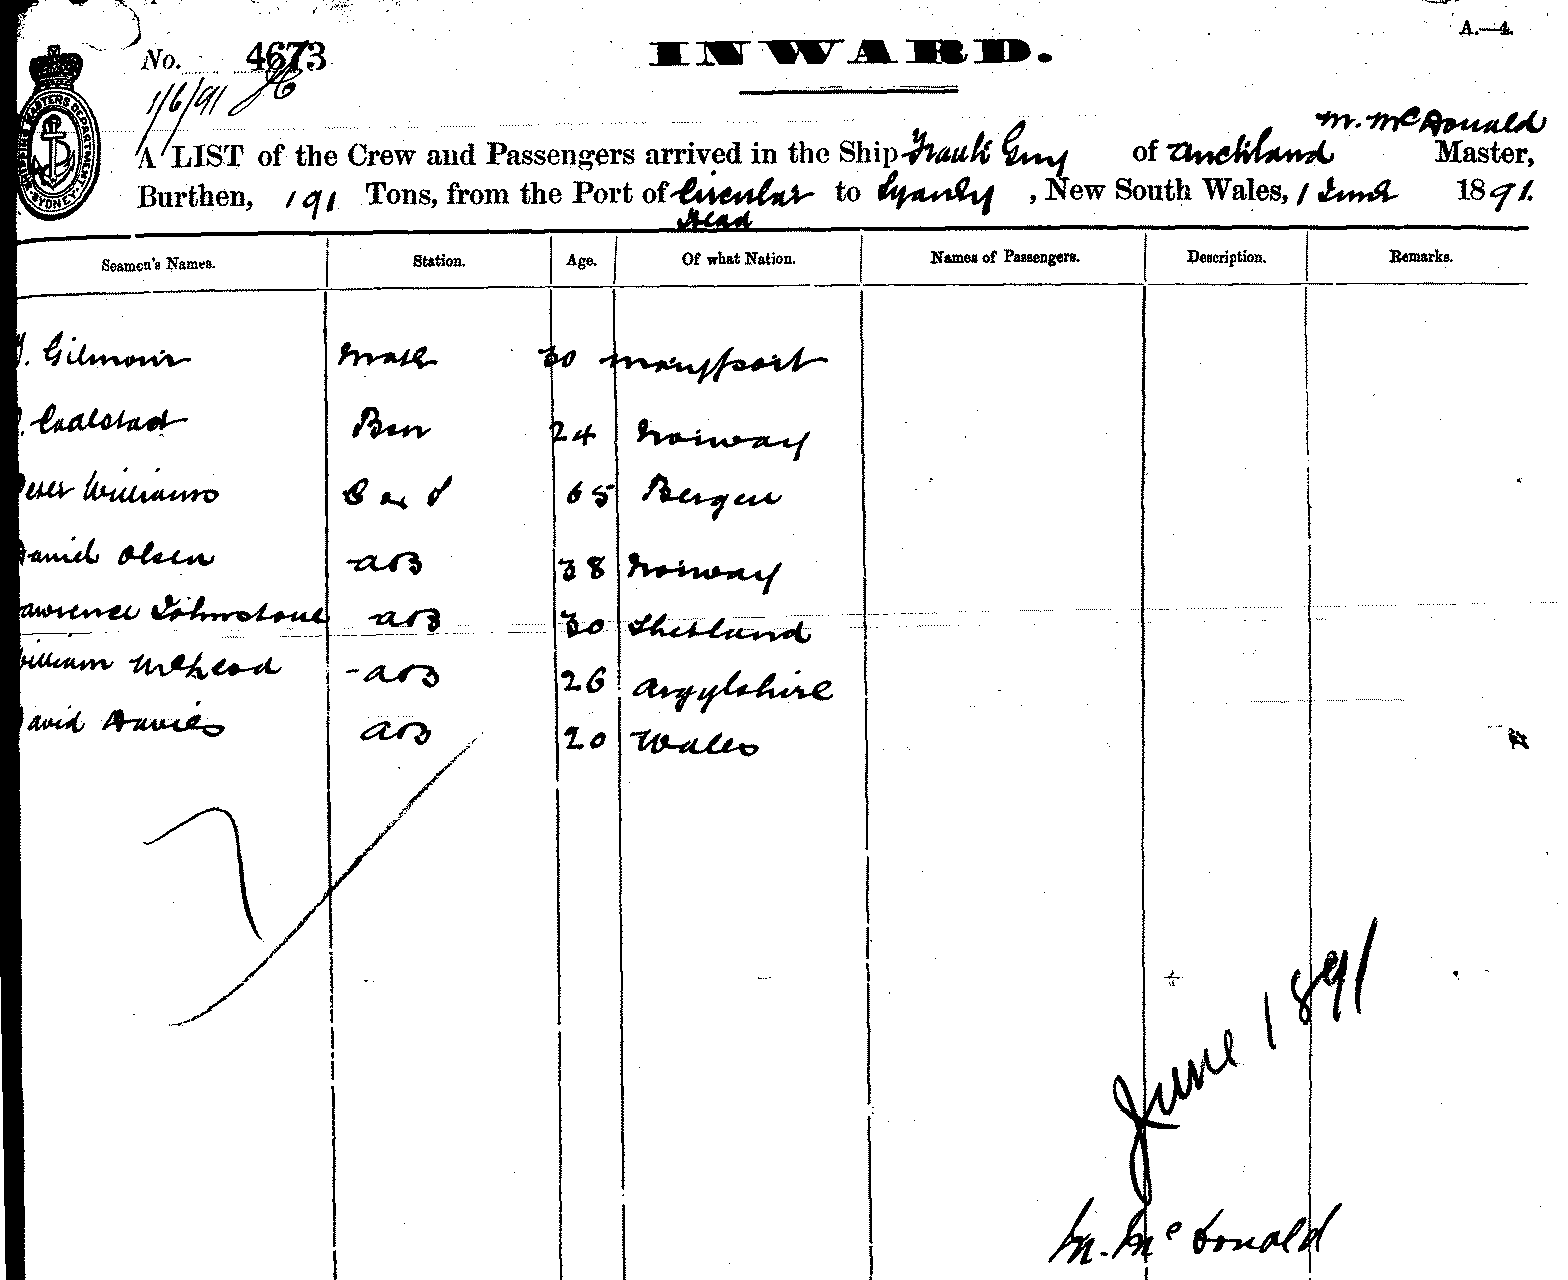 A.—4.
No. 4673
INWARD.
1/6/91
M. McDonald
A LIST of the Crew and Passengers arrived in the Ship Frank Guy of Auckland Master,
Burthen, 191 Tons, from the Port of Circular to Sydney, New South Wales, 1 June 1891.
Head
Seamen's Names. Station. Age. Of what Nation. Names of Passengers. Description. Remarks.
Gilmour Mate 30 Maryport
Bsn 24 Norway
eter Williams C & S 65 Bergen
Daniel Olsen AB 38 Norway
awrence Johnstone AB 30 Shetland
William McLeod AB 26 Argylshire
David Davies AB 20 Wales
7
June 1891
M. McDonald